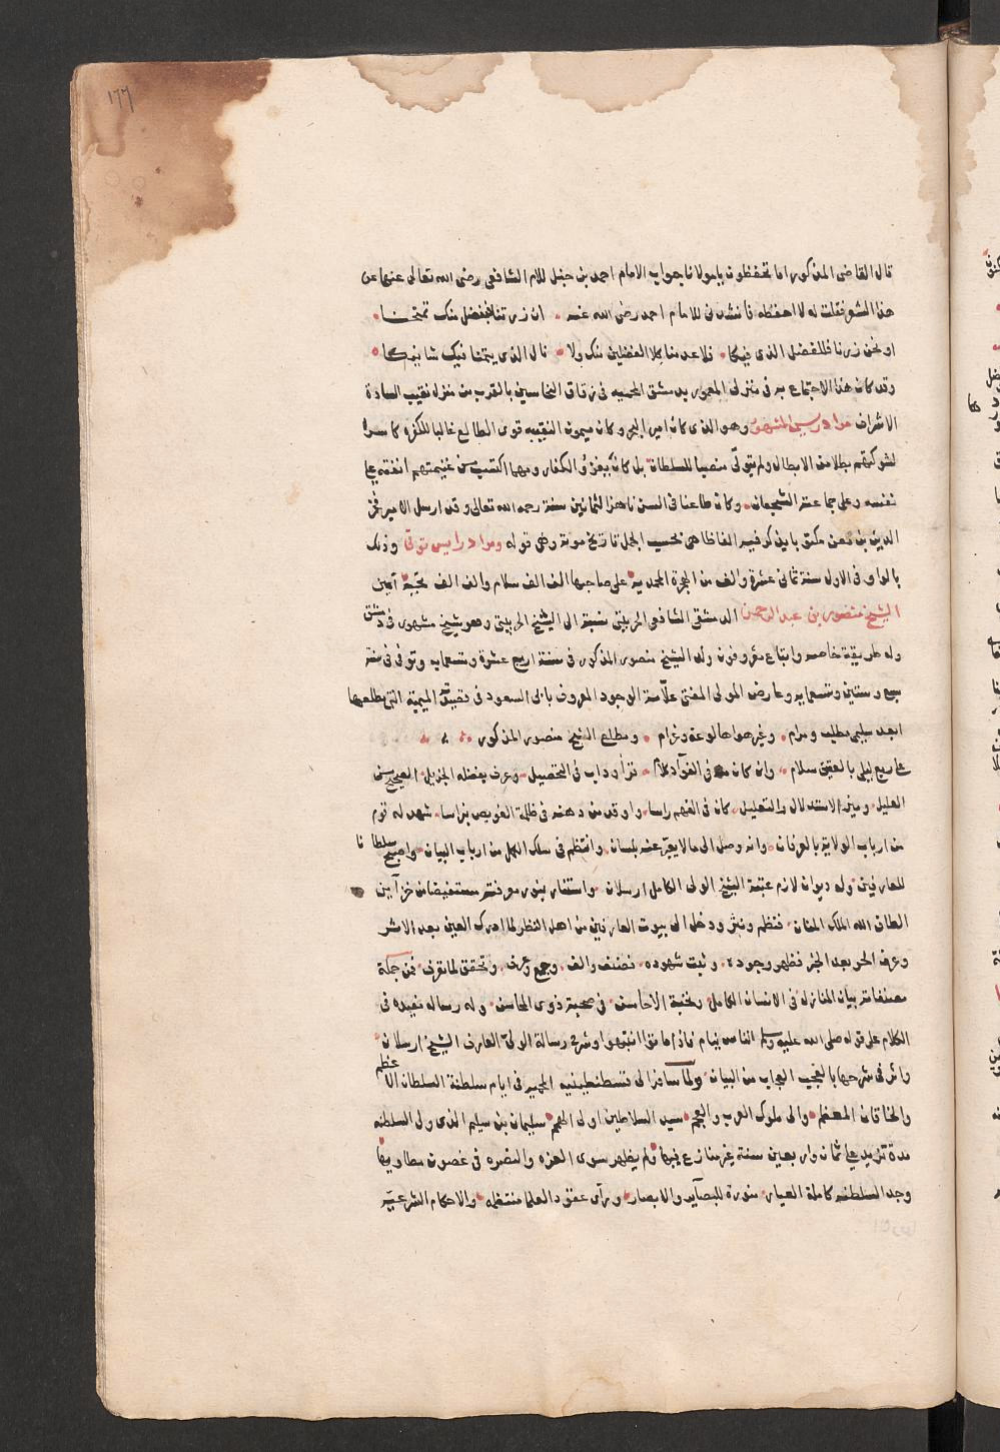 ١٧٦
قال القاضى المذكور اما تحفظون يا مولانا جواب الامام احمد بن حنبل للامام الشافعى رضى الله تعالى عنهما عن
هذا الشعر فقلت له لا احفظه فانشدنى للامام احمد رضى الله عنه ان زرتنا فبفضل منك تمنحنا
او نحن زرنا فللفضل الذى فيكا فلا عدمنا كلا الفضلين منك ولا نال الذى يتمنا فيك شانيكا
وقد كان هذا الاجتماع به فى منزلى المعمور بدمشق المحميه فى زقاق النحاسين بالقرب من منزل نقيب السادة
الاشراف مراد رئيس المشهور وهو الذى كان امير البحر وكان ميمون النقيبه قوى الطالع غالبا للكفره كاسرا
لشوكتهم بطلا من الابطال ولم يتولى منصبا للسلطان بل كان يغزو الكفار ومهما اكتسب من غنيمتهم انفقه على
نفسه وعلى جماعته الشجعان وكان طاعنا فى السن ناهز الثمانين سنة رحمه الله تعالى وقد ارسل الامير فخر
الدين بن معن مكتوبا يذكر فيه الفاظا هى بحسب الجمل تاريخ موته وهى قوله ومراد رايس توفى وذلك
بالواو فى الاول سنة ثمانى عشرة والف من الهجرة المحمديه على صاحبها الف الف سلام والف الف تحية آمين
الشيخ منصور بن عبد الرحمن الدمشقى الشافعى الحريثى نسبة الى الشيخ الحريثى وهو شيخ مشهور فى دمشق
وله طريقة خاصه واتباع معروفون ولد الشيخ منصور المذكور فى سنة اربع عشرة وتسعمايه وتوفى فى سنة
سبع وستين وتسعمايه وعارض المولى المفتى علامة الوجود المعروف بابى السعود فى قصيدته الميمية التى مطلعها
ابعد سليمى مطلب ومرام وغير هواها لوعة وغرام ومطلع الشيخ منصور المذكور
على ربع ليلى بالعقيق سلام وان كان فى الفؤاد كلام قرأ وداب فى التحصيل وعرف بفضله الجزيل الصحيح من
العليل وميز الاستدلال والتعليل كان فى الفهم راسا واوقد من ذهنه فى ظلمة الغويص نبراسا شهد له قوم
من ارباب الولاية بالعرفان وانه وصل الى ما لا يعبر عنه بلسان وانتظم فى سلك الكمل من ارباب البيان واصبح سلطانا
للعارفين وله ديوان لازم عتبة الشيخ الولى الكامل ارسلان واستنار بنور معرفته مستفيضا من خزآين
الطاف الله الملك المنان فنظم ونثر ودخل الى بيوت العارفين من اهل النظر لما ادرك العين بعد الاثر
وعرف الخبر بعد الخبر فظهر وجوده وثبت شهوده فصنف والف وجمع وعرف وتحقق لما تعرف فمن جملة
مصنفاته بيان المنازله فى الانسان الكامل ونخبة الاحاسن فى صحبة ذوى المحاسن وله رساله مفيده فى
الكلام على قوله صلى الله عليه وسلم الناس نيام فاذا ماتوا انتبهوا وشرح رسالة الولى العارف الشيخ ارسلان
واتى فى شرحها بالعجيب العجاب من البيان ولما سافر الى قسطنطينيه المحميه فى ايام سلطنة السلطان الاعظم
والخاقان المعظم والى ملوك العرب والعجم سيد السلاطين اولى الهمم سليمان بن سليم الذى ولى السلطنه
مدة تزيد على ثمان واربعين سنة غير منازع فيها ولم يظهر سوى العزه والنضره فى غصون مطاويها
وجد السلطنه كاملة العيار منورة للبصآير والابصار ورأى عقود العلما منتظمه والاحكام الشرعيه